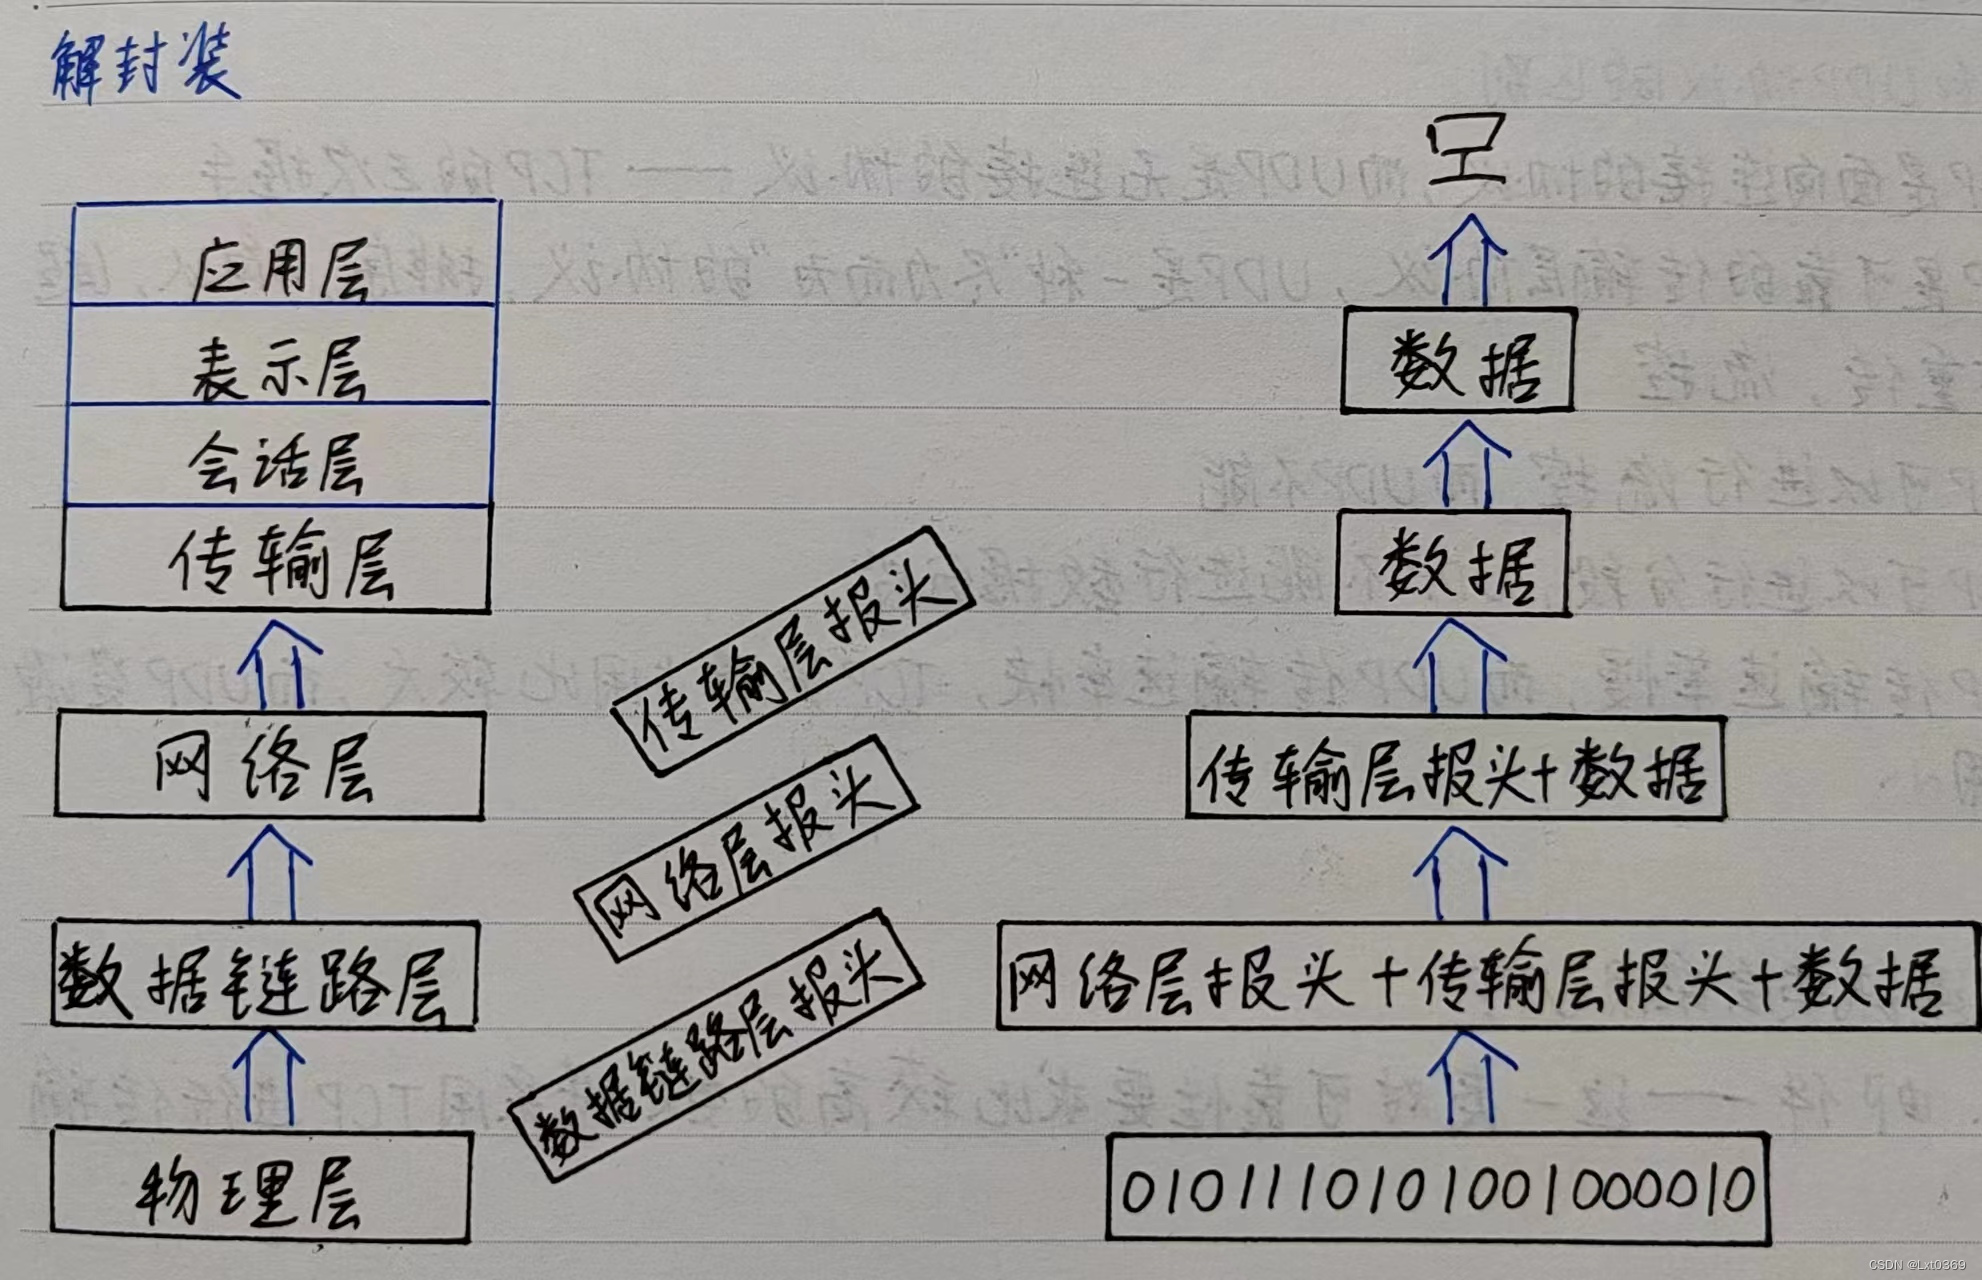 解封装
应用层
表示层
会话层
传输层
网络层
数据链路层
物理层
传输层报头
网络层报头
数据链路层报头
数据
数据
传输层报头+数据
网络层报头+传输层报头+数据
0101110101001000010
CSDN @Lxt0369